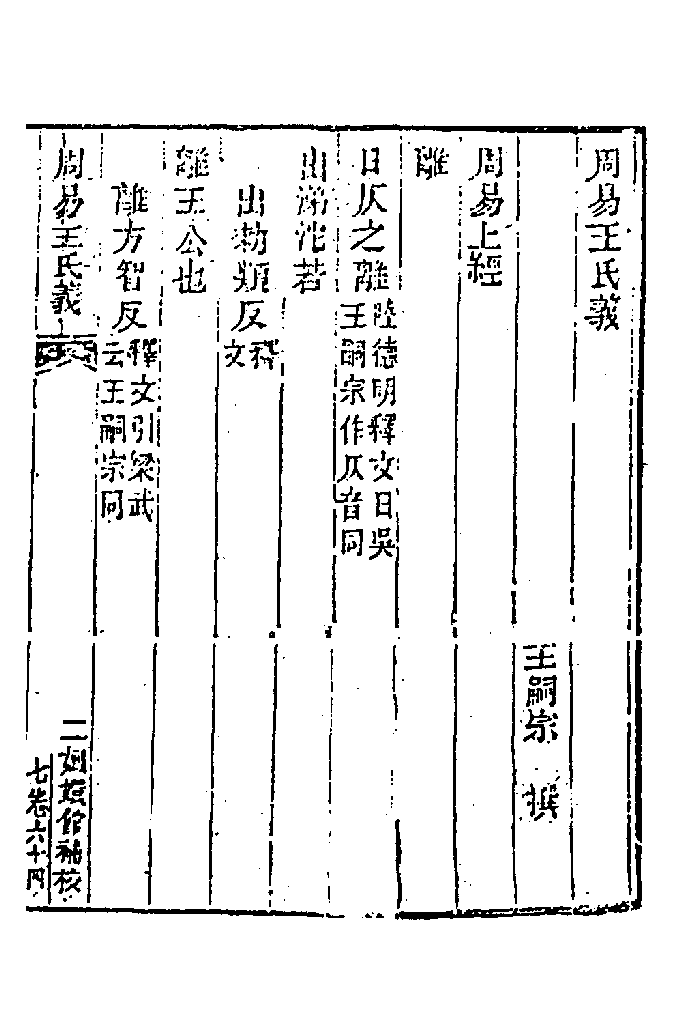 周易王氏義
王嗣宗　撰
周易上經
離
日仄之離陸德明釋文曰吳
王嗣宗作仄音同
出涕沱若
出勑類反釋
文
離王公也
離方智反釋文引梁武
云王嗣宗同
周易王氏義
一
二 嫏嬛館補校
七卷六十四